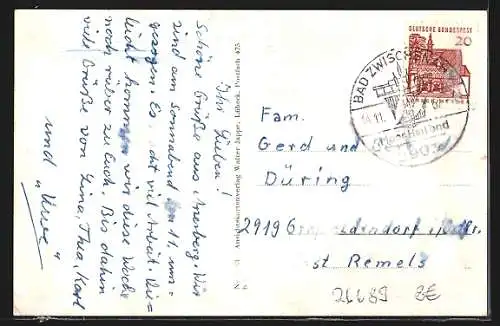 Ihr Lieben!
Schöne Grüße aus Wir
sind am Sonnabend 11. um-
gezogen. Es viel Arbeit. Vie-
leicht kommen wir diese Woche
noch rüber zu Euch. Bis dahin
viele Grüße von Lina, Thea, Karl
und
" Uwe "
Ansichtskartenverlag Walter Jappe, Lübeck, Postfach 425
DEUTSCHE BUNDESPOST
20
BAD ZWISCHENAHN
14.11.
2903
Fam.
Gerd und
Düring
2919
st Remels
26689 BE